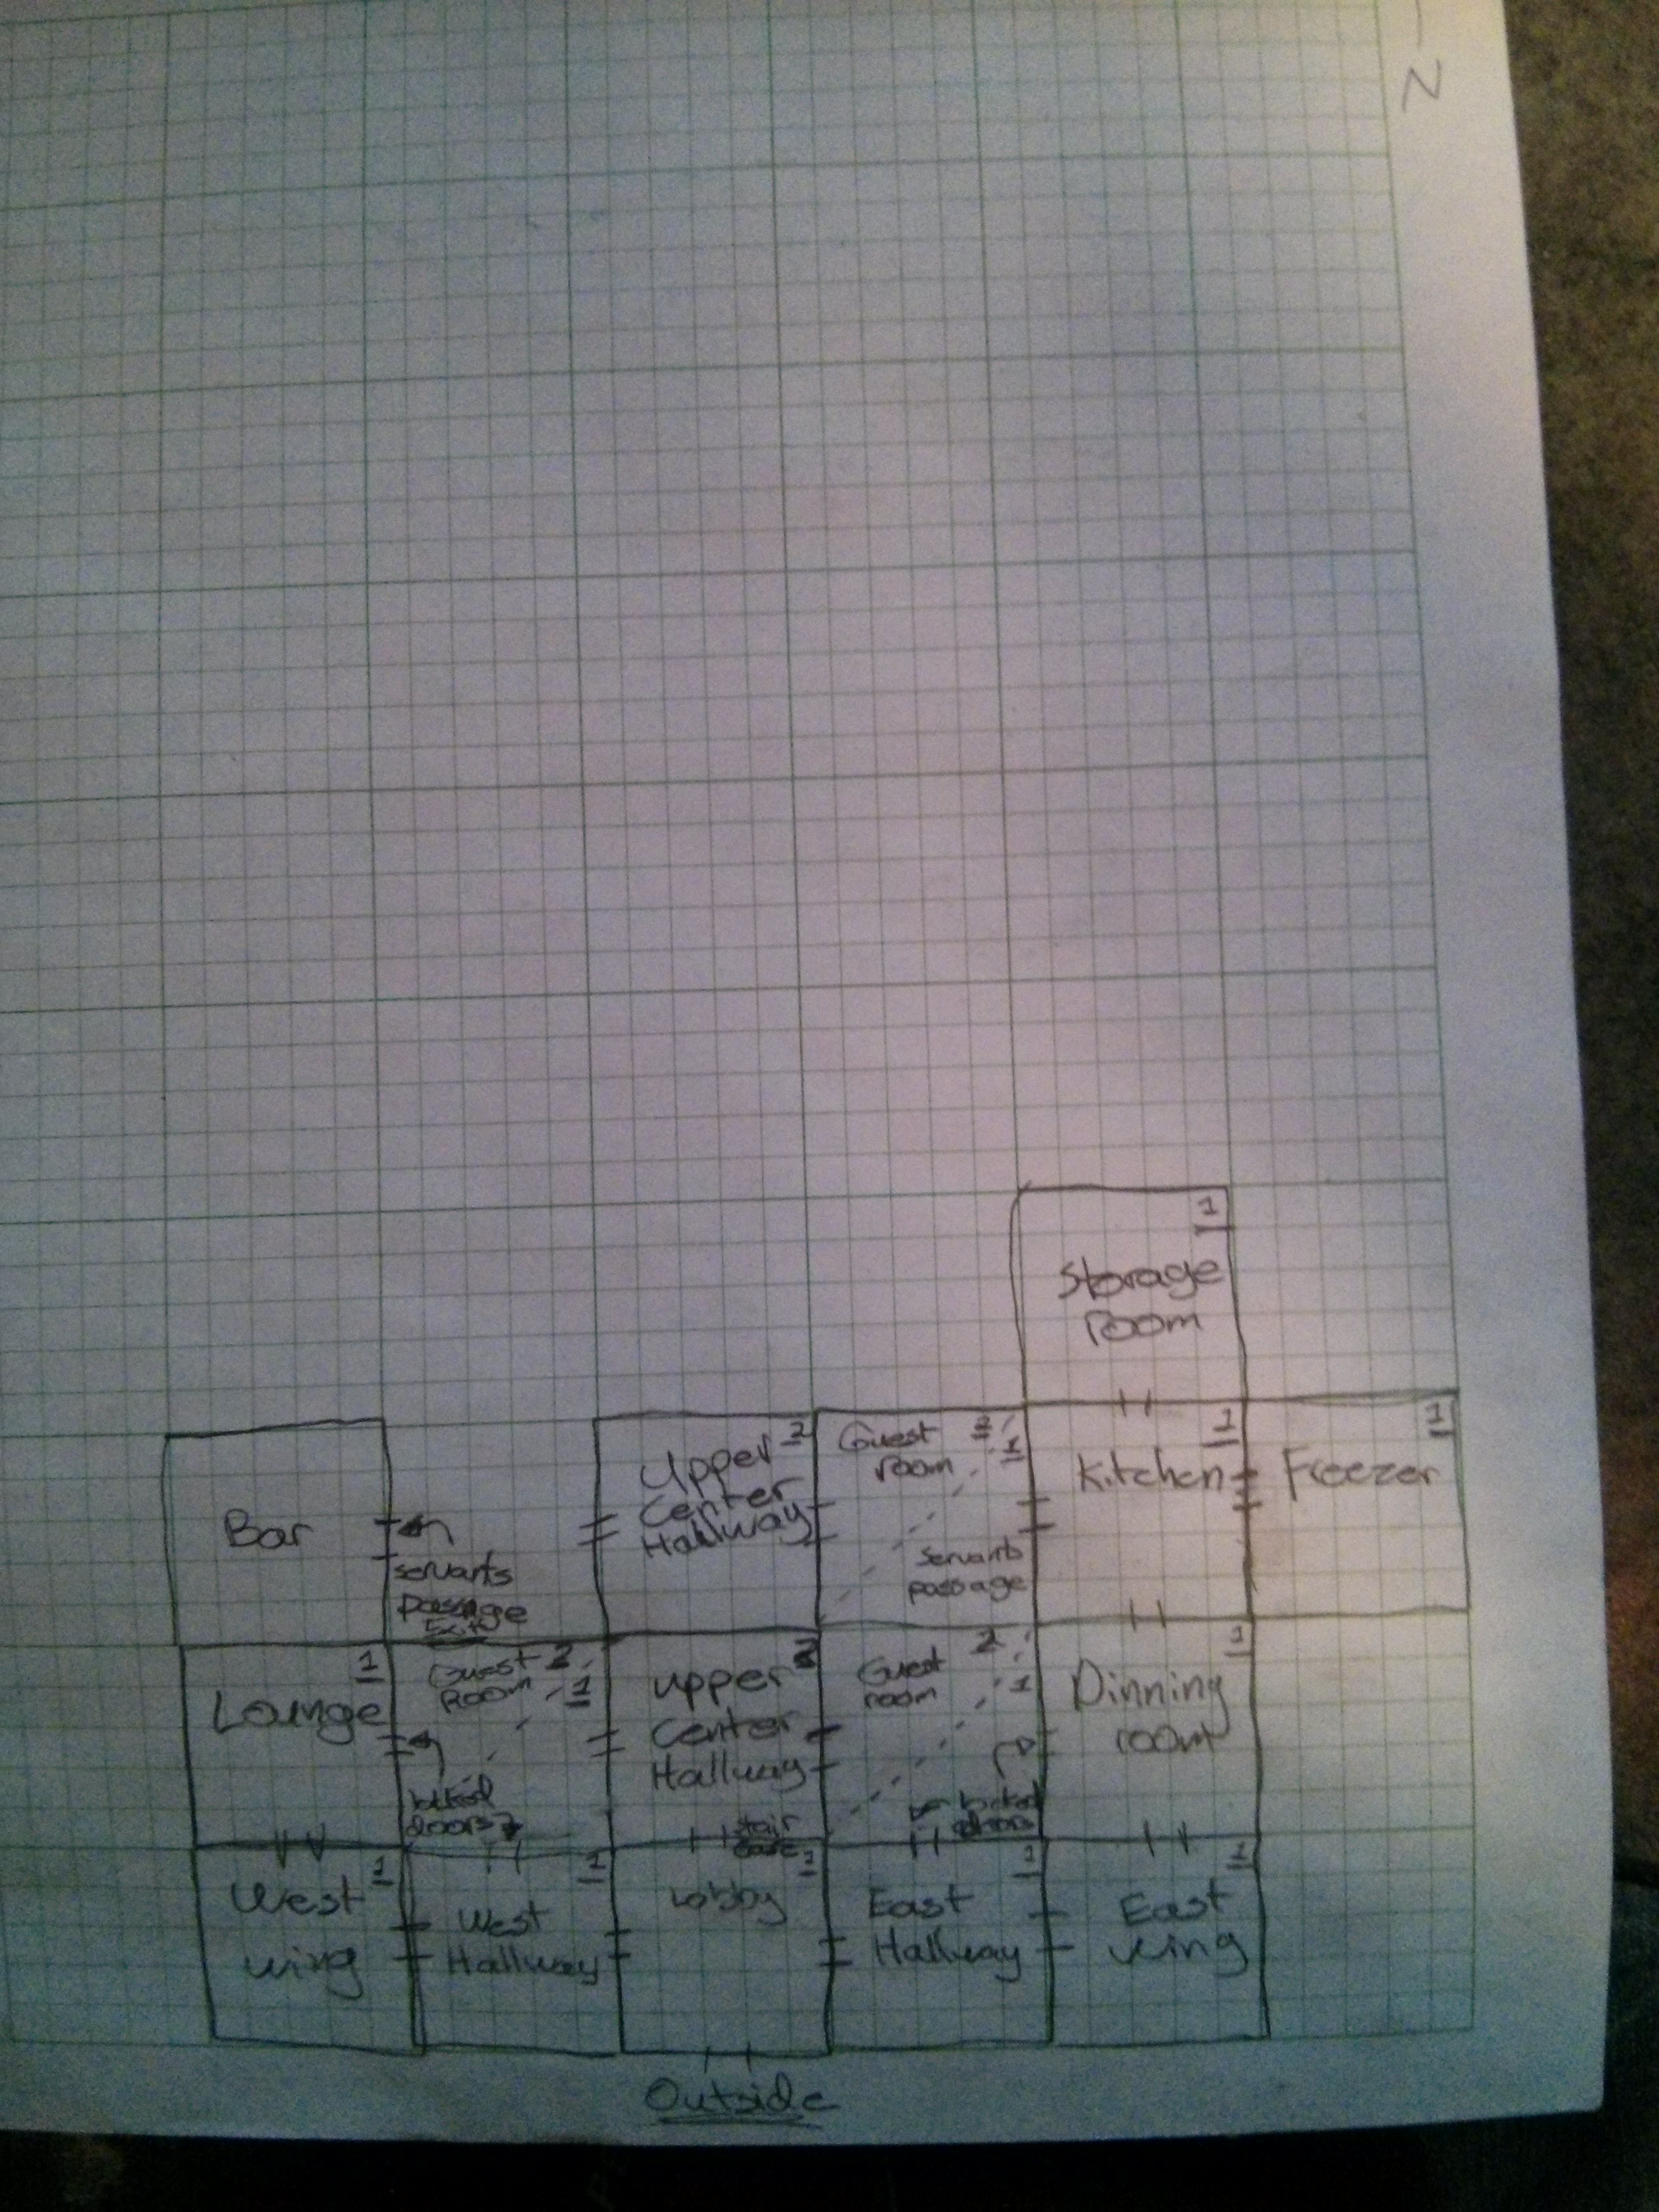 N
1
Storage
Room
Bar
servants
passage
Exit
Upper 2
Center
Hallway
Guest 2
room 1
servants
passage
1
Kitchen
1
Freezer
1
Lounge
Guest 2
Room 1
locked
doors
upper
Center
Hallway
stair
case
Guest 2
room 1
locked
doors
1
Dinning
room
1
West
wing
1
West
Hallway
1
Lobby
1
East
Hallway
1
East
wing
Outside